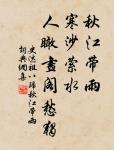 秋江帶雨
寒沙縈水
人瞰畫閣愁獨
史达祖八歸秋江帶雨
詞典網集